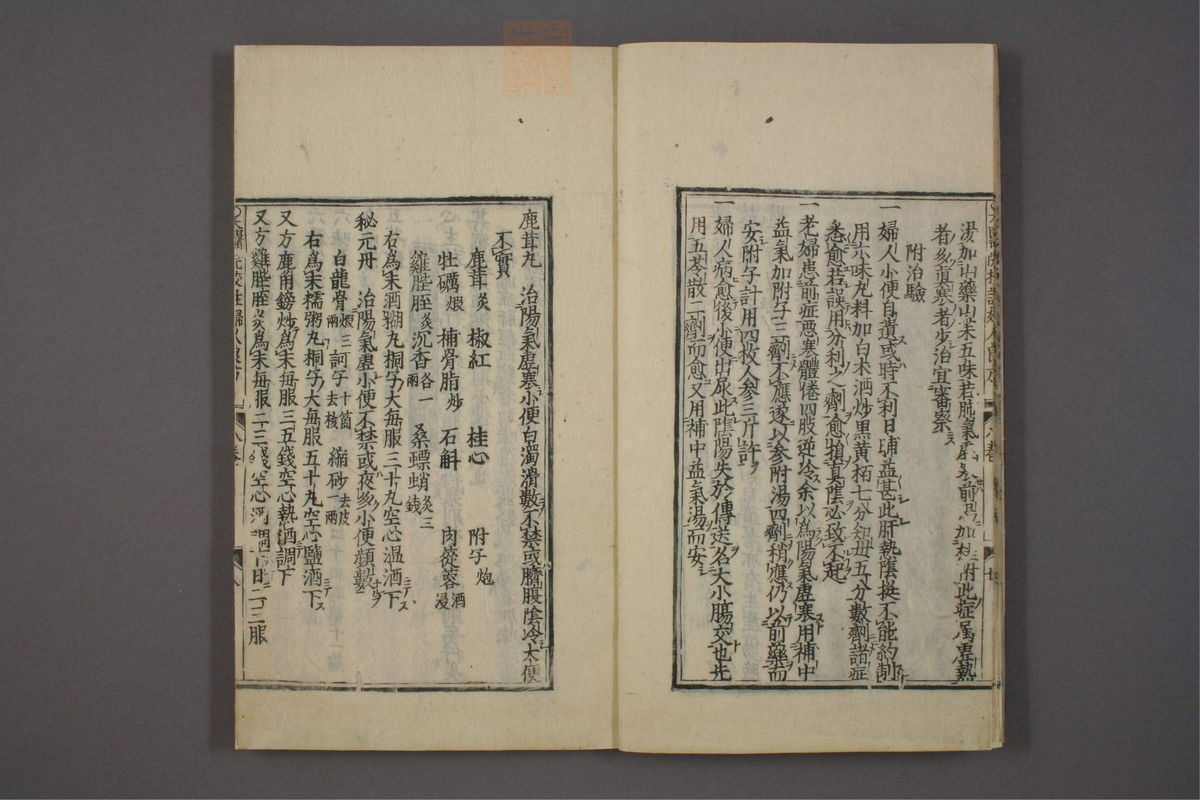 湯加山藥山茱五味若肺氣虛寒前湯加桂附此症屬虛熱
者多眞寒者少治宜審察
附治驗
一婦人小便自遺或時不利日晡益甚此肝熱陰挺不能約制
用六味丸料加白朮酒炒黑黃栢七分知母五分數劑諸症
悉愈若誤用分利之劑愈損眞陰必致不起
一老婦患前症惡寒體倦四肢逆冷余以爲陽氣虛寒用補中
益氣加附子三劑不應遂以參附湯四劑稍應仍以前藥而
安附子計用四枚人參三斤許
一婦人病愈後小便出屎此陰陽失於傳送名大小腸交也先
用五苓散二劑而愈又用補中益氣湯而安
鹿茸丸 治陽氣虛寒小便白濁滑數不禁或臍腹陰冷大便
不實
鹿茸炙 椒紅 桂心 附子炮
牡礪煨 補骨脂炒 石斛 肉蓯蓉酒浸
雞膍胵炙 沉香各一兩 桑螵蛸炙三錢
右爲末酒糊丸桐子大每服三十丸空心温酒下
秘元丹 治陽氣虛小便不禁或夜多小便頻數
白龍骨煨三兩 訶子十箇去核 縮砂去皮一兩
右爲末糯粥丸桐子大每服五十丸空心鹽酒下
又方鹿角鎊炒爲末每服三五錢空心熱酒調下
又方雞膍胵炙爲末每服二三錢空心酒調下日二三服